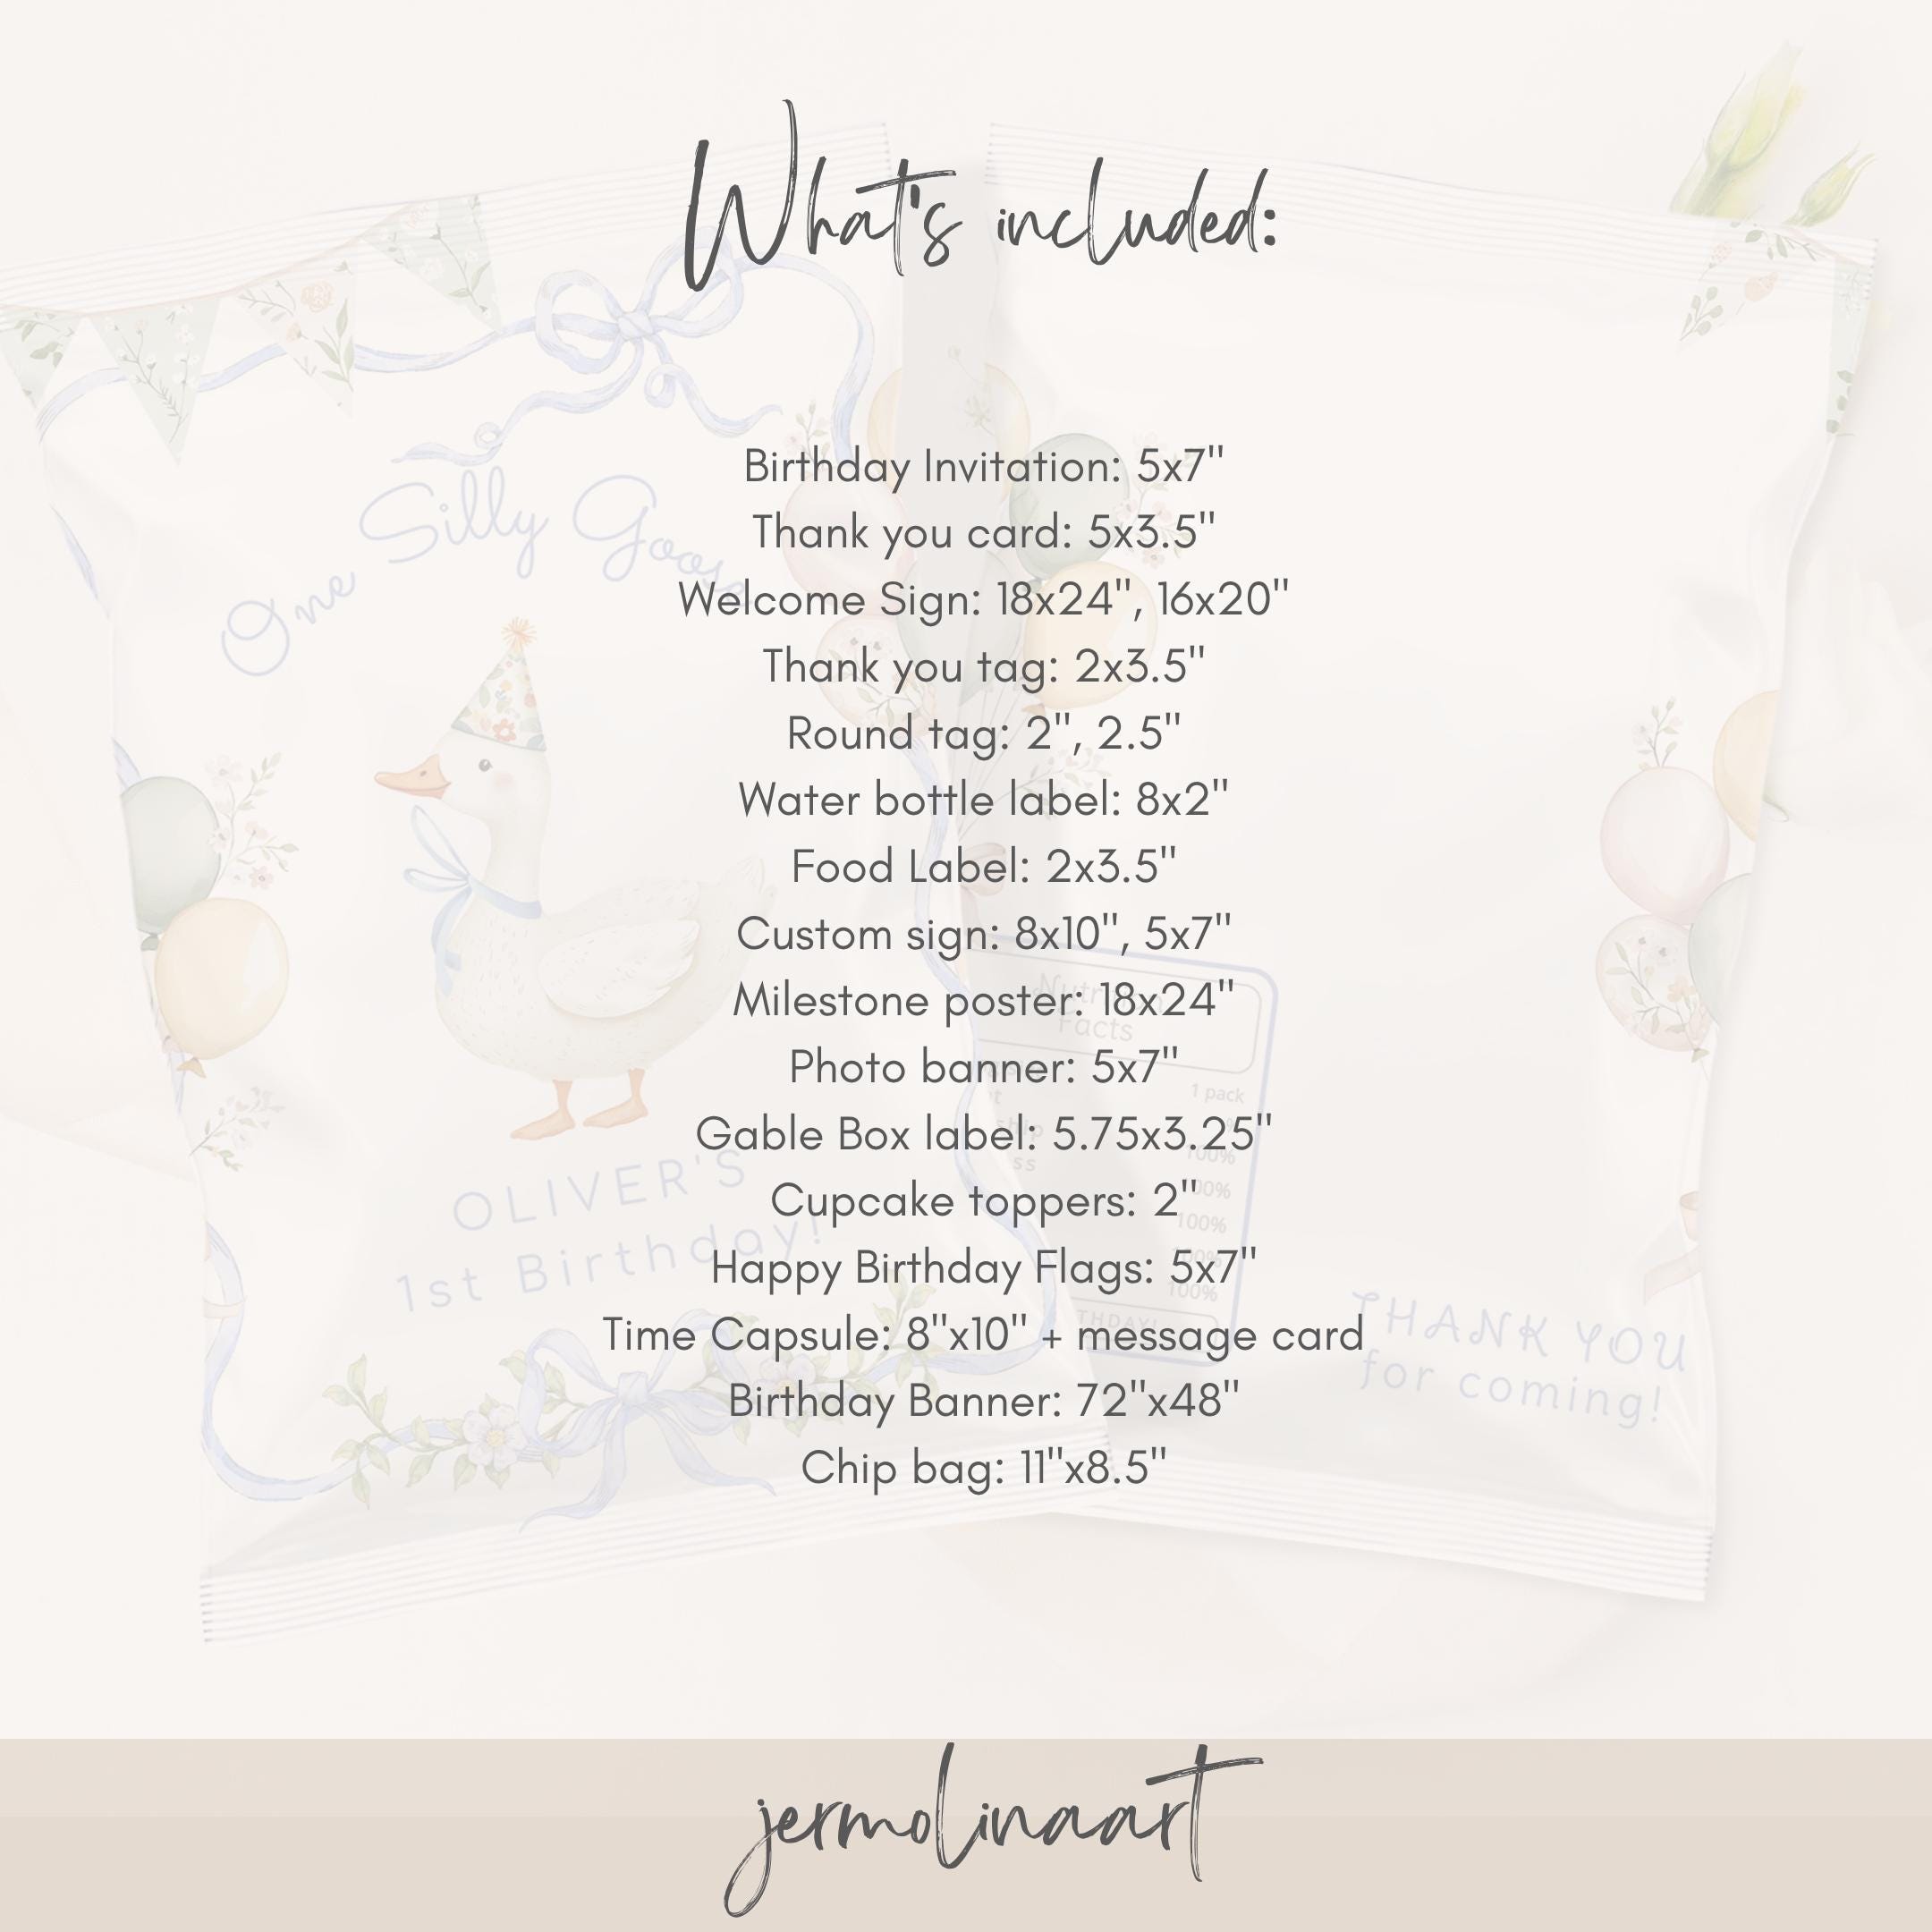 What's included:
Birthday Invitation: 5x7"
Thank you card: 5x3.5"
Welcome Sign: 18x24", 16x20"
Thank you tag: 2x3.5"
Round tag: 2", 2.5"
Water bottle label: 8x2"
Food Label: 2x3.5"
Custom sign: 8x10", 5x7"
Milestone poster: 18x24"
Photo banner: 5x7"
Gable Box label: 5.75x3.25"
Cupcake toppers: 2"
Happy Birthday Flags: 5x7"
Time Capsule: 8"x10" + message card
Birthday Banner: 72"x48"
Chip bag: 11"x8.5"
One Silly Goose
OLIVER'S
1st Birthday!
Nutrition
Facts
1 pack
100%
100%
100%
100%
THANK YOU
for coming!
jermolinaart